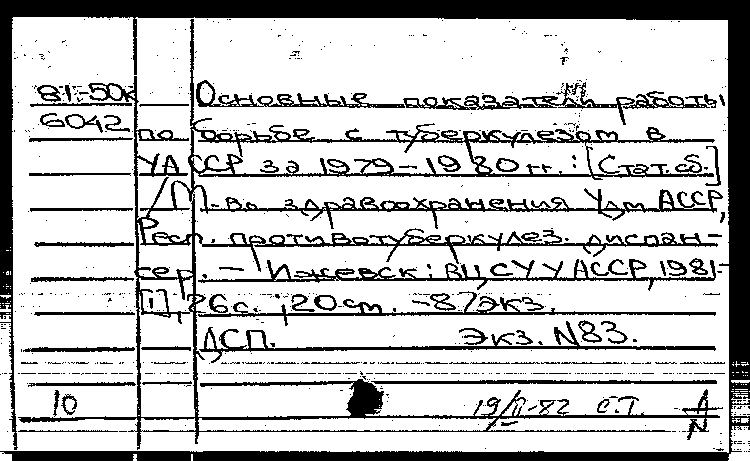 81-50к Основные показатели работы
6042 по борьбе с туберкулезом в
УАССР за 1979-1980 гг. : [Стат. сб.]
/ М-во здравоохранения Удм АССР,
Респ. противотуберкулез. диспан-
сер. - Ижевск : ВЦ СУ УАССР, 1981-
[1], 26 с. ; 20 см. - 87 экз.
ДСП. Экз. N83.
10 19/II-82 С.Т. А/N